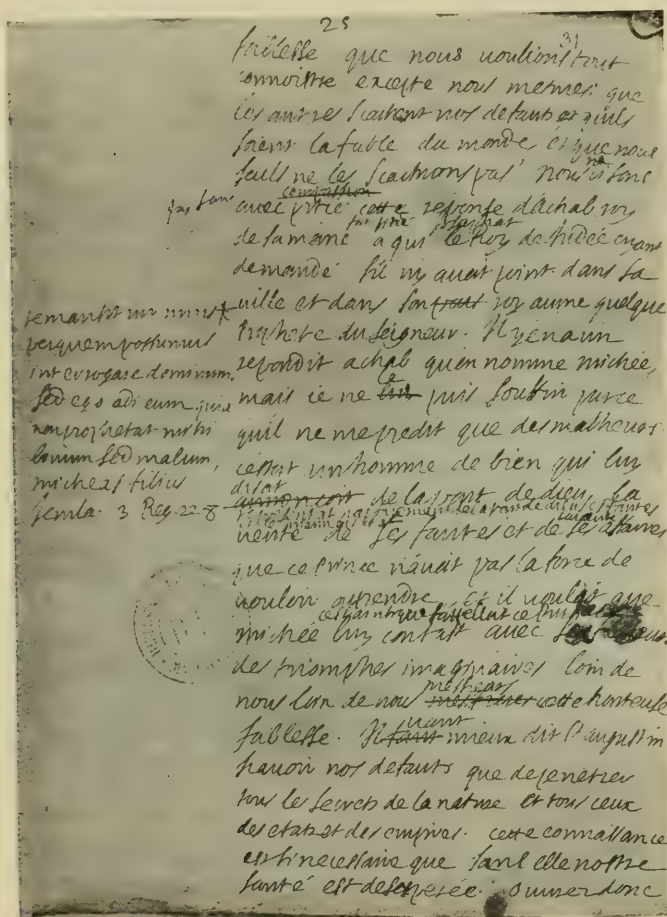 25
31
foiblesse que nous voulions tout
connoistre excepté nous mesmes que
les autres scachent nos defauts et quils
soient la fable du monde et que nous
seuls ne les scachions pas nous
avec pitié cette compassion reponse dachab roy
de samarie a qui le Roy de Judée ayant
demandé sil ny avoit point dans sa
ville et dans son pais royaume quelque
prophete du seigneur. Il y en a un
repondit achab quon nomme michée,
mais ie ne le puis souffrir parce
quil ne me predit que des malheurs
cestoit un homme de bien qui luy
disoit
annoncoit de la part de dieu la
verité de ses fautes et de ses affaires
que ce Prince navoit pas la force de
vouloir aprendre et il vouloit que
michée luy contast avec
des triomphes imaginaires loin de
nous loin de nous messieurs cette honteuse
foiblesse. Il vaut mieux dit St augustin
scavoir nos defauts que de penetrer
tous les secrets de la nature et tous ceux
des etats et des empires. cette connoissance
est si necessaire que sans elle nostre
santé est desesperée. ouvrez donc
remansit vir unus
per quem possumus
interrogare dominum.
sed ego odi eum quia
non prophetat mihi
bonum sed malum,
micheas filius
Jemla. 3 Reg. 22-8